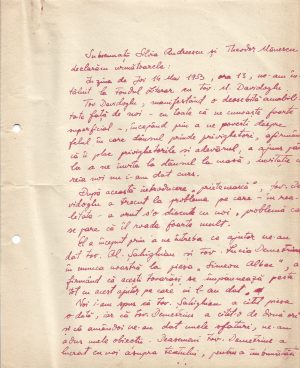 Subsemnații Silvia Andreescu și Theodor Mănescu
declarăm următoarele:
În ziua de Joi 14 Mai 1953, ora 13, ne-am în-
tâlnit la Fondul Literar cu tov. M. Davidoglu
Tov. Davidoglu, manifestând o deosebită amabili-
tate față de noi - cu toate că ne cunoaște foarte
superficial -, începând prin a ne povesti despre
felul în care dânsul prinde privighetori, afirmând
că îi plac privighetorile și adevărul, a ajuns până
la a ne invita la dânsul la masă, invitație că-
reia noi nu i-am dat curs.
După această introducere „prietenească”, tov. Da-
vidoglu a trecut la problema pe care - în rea-
litate - a vrut s'o discute cu noi, problemă care
se pare că îl roade foarte mult.
El a început prin a ne întreba ce ajutor ne-au
dat tov. Al. Șahighian și tov. Lucia Demetrius
în munca noastră la piesa „Simeon Albac”, a-
firmând că acești tovarăși se împăunează peste
tot cu acest ajutor pe care ni l-au dat.
Noi i-am spus că tov. Șahighian a citit piesa
o dată, iar că tov. Demetrius a citit-o de două ori
și că amândoi ne-au dat unele sfaturi, ne-au
adus unele obiecții. Deasemeni tov. Demetrius a
lucrat cu noi asupra textului, pentru a îmbunătăți